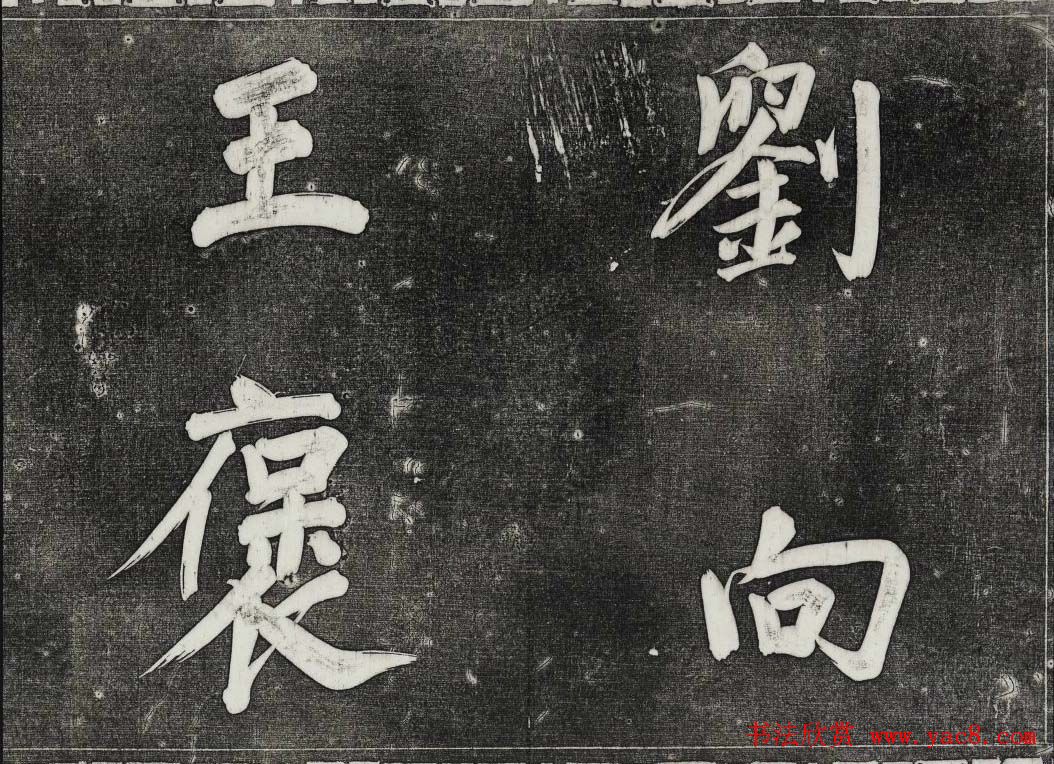 劉向
王褒
书法欣赏 www.yac8.com